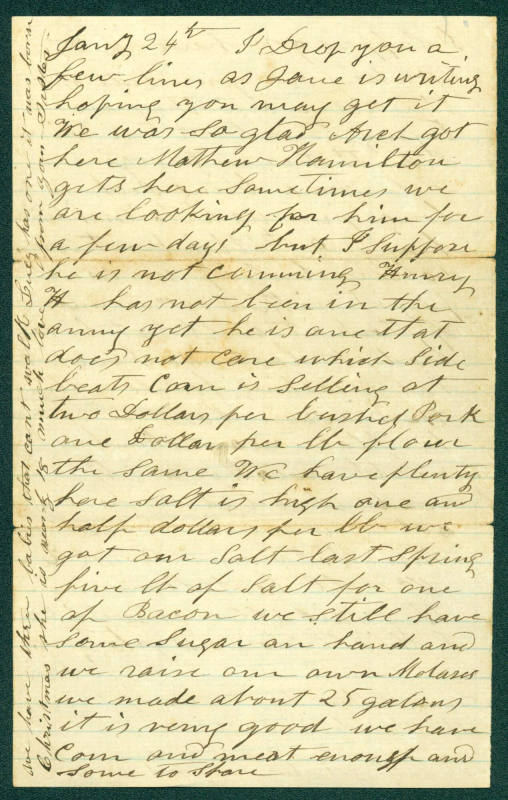 Jany 24th I Drop you a
few lines as Jane is writing
hoping you may get it
We was so glad Arch got
here Mathew Hamilton
gets here Sometimes we
are looking for him for
a few days but I Suppose
he is not cumming Henry
H has not been in the
army yet he is one that
does not care which Side
beats Corn is Selling at
two Dollars per bushel Pork
one Dollar per lb flour
the same We have plenty
here salt is high one and
half dollars per lb we
got our Salt last Spring
five lb of Salt for one
of Bacon we still have
Some Sugar on hand and
we raise our own Molases
we made about 25 galons
it is verry good we have
Corn and meat enough and
Some to Spare
we have three babies that cant walk has one it was born
Christmas she is nearly 18 much love from your Sister